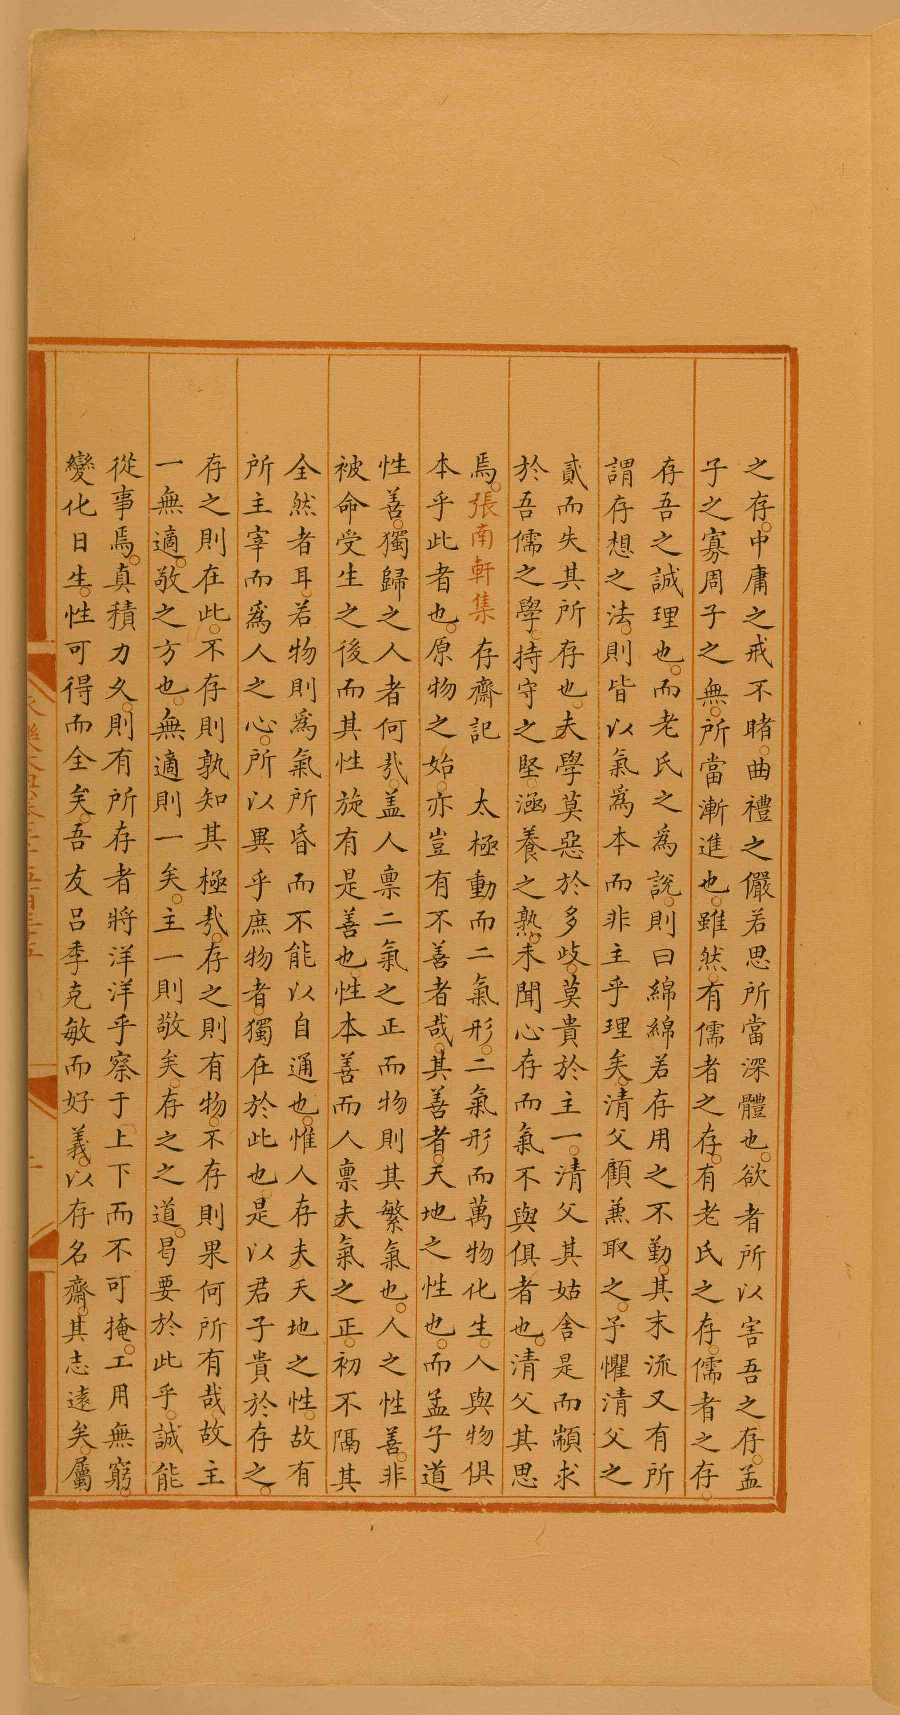 之存。中庸之戒不睹。曲禮之儼若思所當深體也。欲者所以害吾之存。孟
子之寡周子之無。所當漸進也。雖然。有儒者之存。有老氏之存。儒者之存。
存吾之誠理也。而老氏之為說。則曰綿綿若存用之不勤。其末流又有所
謂存想之法。則皆以氣為本而非主乎理矣。清父顧兼取之。予懼清父之
貳而失其所存也。夫學莫惡於多歧。莫貴於主一。清父其姑舍是而顓求
於吾儒之學。持守之堅。涵養之熟。未聞心存而氣不與俱者也。清父其思
焉。張南軒集 存齋記 太極動而二氣形。二氣形而萬物化生。人與物俱
本乎此者也。原物之始。亦豈有不善者哉。其善者。天地之性也。而孟子道
性善。獨歸之人者何哉。蓋人禀二氣之正而物則其繁氣也。人之性善。非
被命受生之後而其性旋有是善也。性本善而人禀夫氣之正。初不隔其
全然者耳。若物則為氣所昏而不能以自通也。惟人存夫天地之性。故有
所主宰而為人之心。所以異乎庶物者。獨在於此也。是以君子貴於存之。
存之則在此。不存則孰知其極哉。存之則有物。不存則果何所有哉。故主
一無適。敬之方也。無適則一矣。主一則敬矣。存之之道。曷要於此乎。誠能
從事焉。真積力久。則有所存者將洋洋乎察于上下而不可掩。工用無窮。
變化日生。性可得而全矣。吾友呂季克敏而好義。以存名齋。其志遠矣。屬